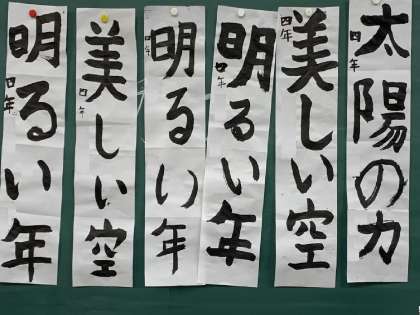 太陽の力
四年
美しい空
四年
明るい年
四年
明るい年
四年
美しい空
四年
明るい年
四年